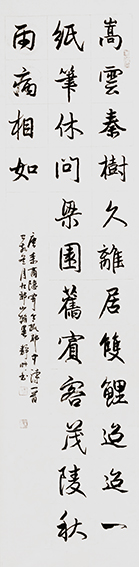 嵩雲秦樹久離居雙鯉迢迢一
紙筆休問梁園舊賓客茂陵秋
雨病相如
唐李商隱寄令狐郎中詩一首